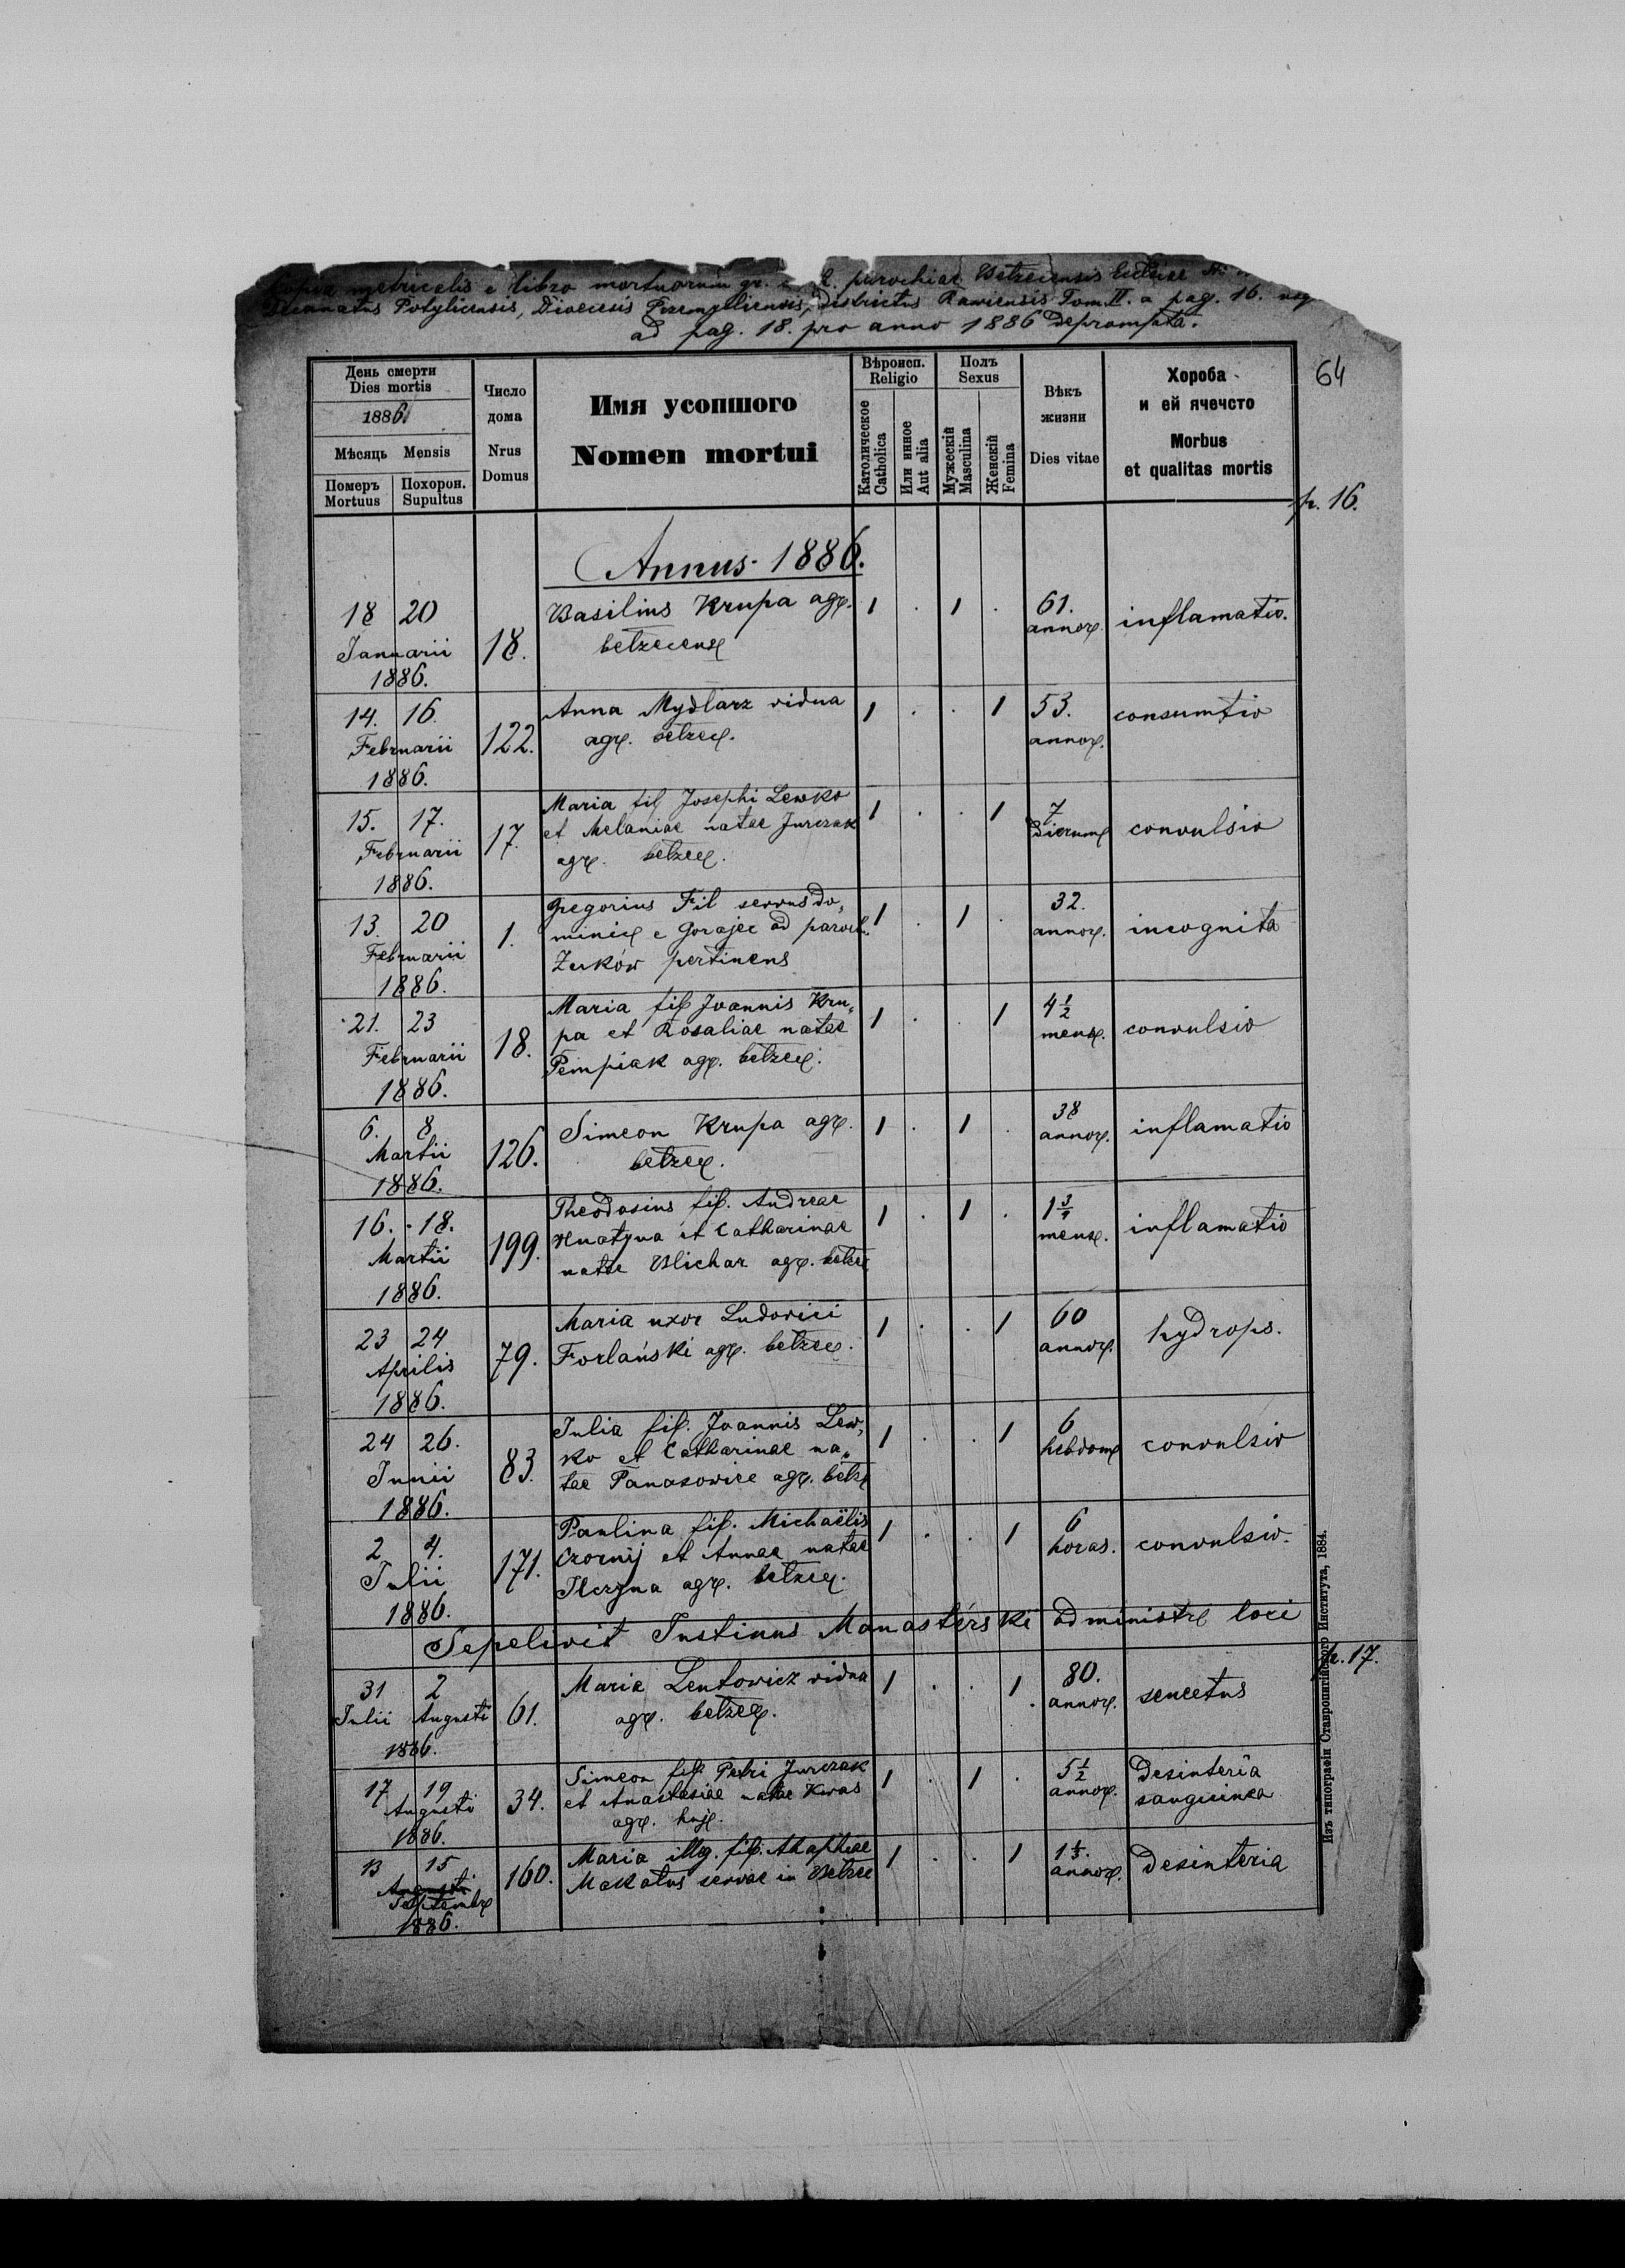 Copia metricalis e libro mortuorum gr. c. R. parochiae Betzeciensis Ecclsiae
Decanatus Potyliciensis, Dioecesis Przemysliensis, Districtus Raviensis Tom. II. a pag. 16. usq
ad pag. 18. pro anno 1886 deprompta.
64
День смерти
Dies mortis
1886.
Мѣсяць Mensis
Померъ Mortuus
Похорон. Supultus
Число дома
Nrus Domus
Имя усопшого
Nomen mortui
Вѣроисп.
Religio
Католическое Catholica
Или инное Aut alia
Полъ
Sexus
Мужескій Masculina
Женскій Femina
Вѣкъ жизни
Dies vitae
Хороба
и ей ячечсто
Morbus
et qualitas mortis
p. 16.
Annus 1886.
18 20 Januarii 1886. 18.
Basilius Krupa agr. 1 . 1 . 61. annor. inflamatio.
betzeciens
14. 16. Februarii 1886. 122.
Anna Mydlarz vidua 1 . . 1 53. annor. consumtio
agr. betzec.
15. 17. Februarii 1886. 17.
Maria fil Josephi Lewko 1 . . 1 7 dierum convulsio
et Melaniae natae Jurczak
agr. betzec.
13. 20 Februarii 1886. 1.
Gregorius Fil servus do„ 1 . 1 . 32. annor. incognita
minic e Gorajec ad paroch.
Zuków pertinens
21. 23 Februarii 1886. 18.
Maria fil Joannis Kru„ 1 . . 1 4 1/2 mens. convulsio
pa et Rosaliae natae
Pempiak agr. betzec.
6. 8 Martii 1886. 126.
Simeon Krupa agr. 1 . 1 . 38 annor. inflamatio
betzec.
16. 18. Martii 1886. 199.
Theodosius fil. Andreae 1 . 1 . 1 3/4 mens. inflamatio
Hnatyna et Catharinae
natae Blichar agr. betzec
23 24 Aprilis 1886. 79.
Maria uxor Ludovici 1 . . 1 60 annor. hydrops.
Forlański agr. betzec.
24 26. Junii 1886. 83.
Julia fil. Joannis Lew„ 1 . . 1 6 hebdom convulsio
ko et Catharinae na„
tae Panasowice agr. betz
2 4. Julii 1886. 171.
Paulina fil. Michaëlis 1 . . 1 6 horas. convulsio.
Czornij et Annae natae
agr. betzec.
Sepelivit Justinus Manasterski administr loci
p. 17.
31 Julii 2 Augusti 1886. 61.
Maria Lentowicz vidua 1 . . 1 80. annor. senectus
agr. betzec.
17 19 Augusti 1886. 34.
Simeon fil Petri Jurczak 1 . 1 . 5 1/2 annor. Desinteria
et Anastasiae natae Kwas sanguinea
agr. huj.
13 15 Augusti Septembr 1886. 160.
Maria illeg. fil. Ahaphiae 1 . . 1 annor. Desinteria
Makatus servae in Betzec
Изъ типографіи Ставропигійского Института, 1884.